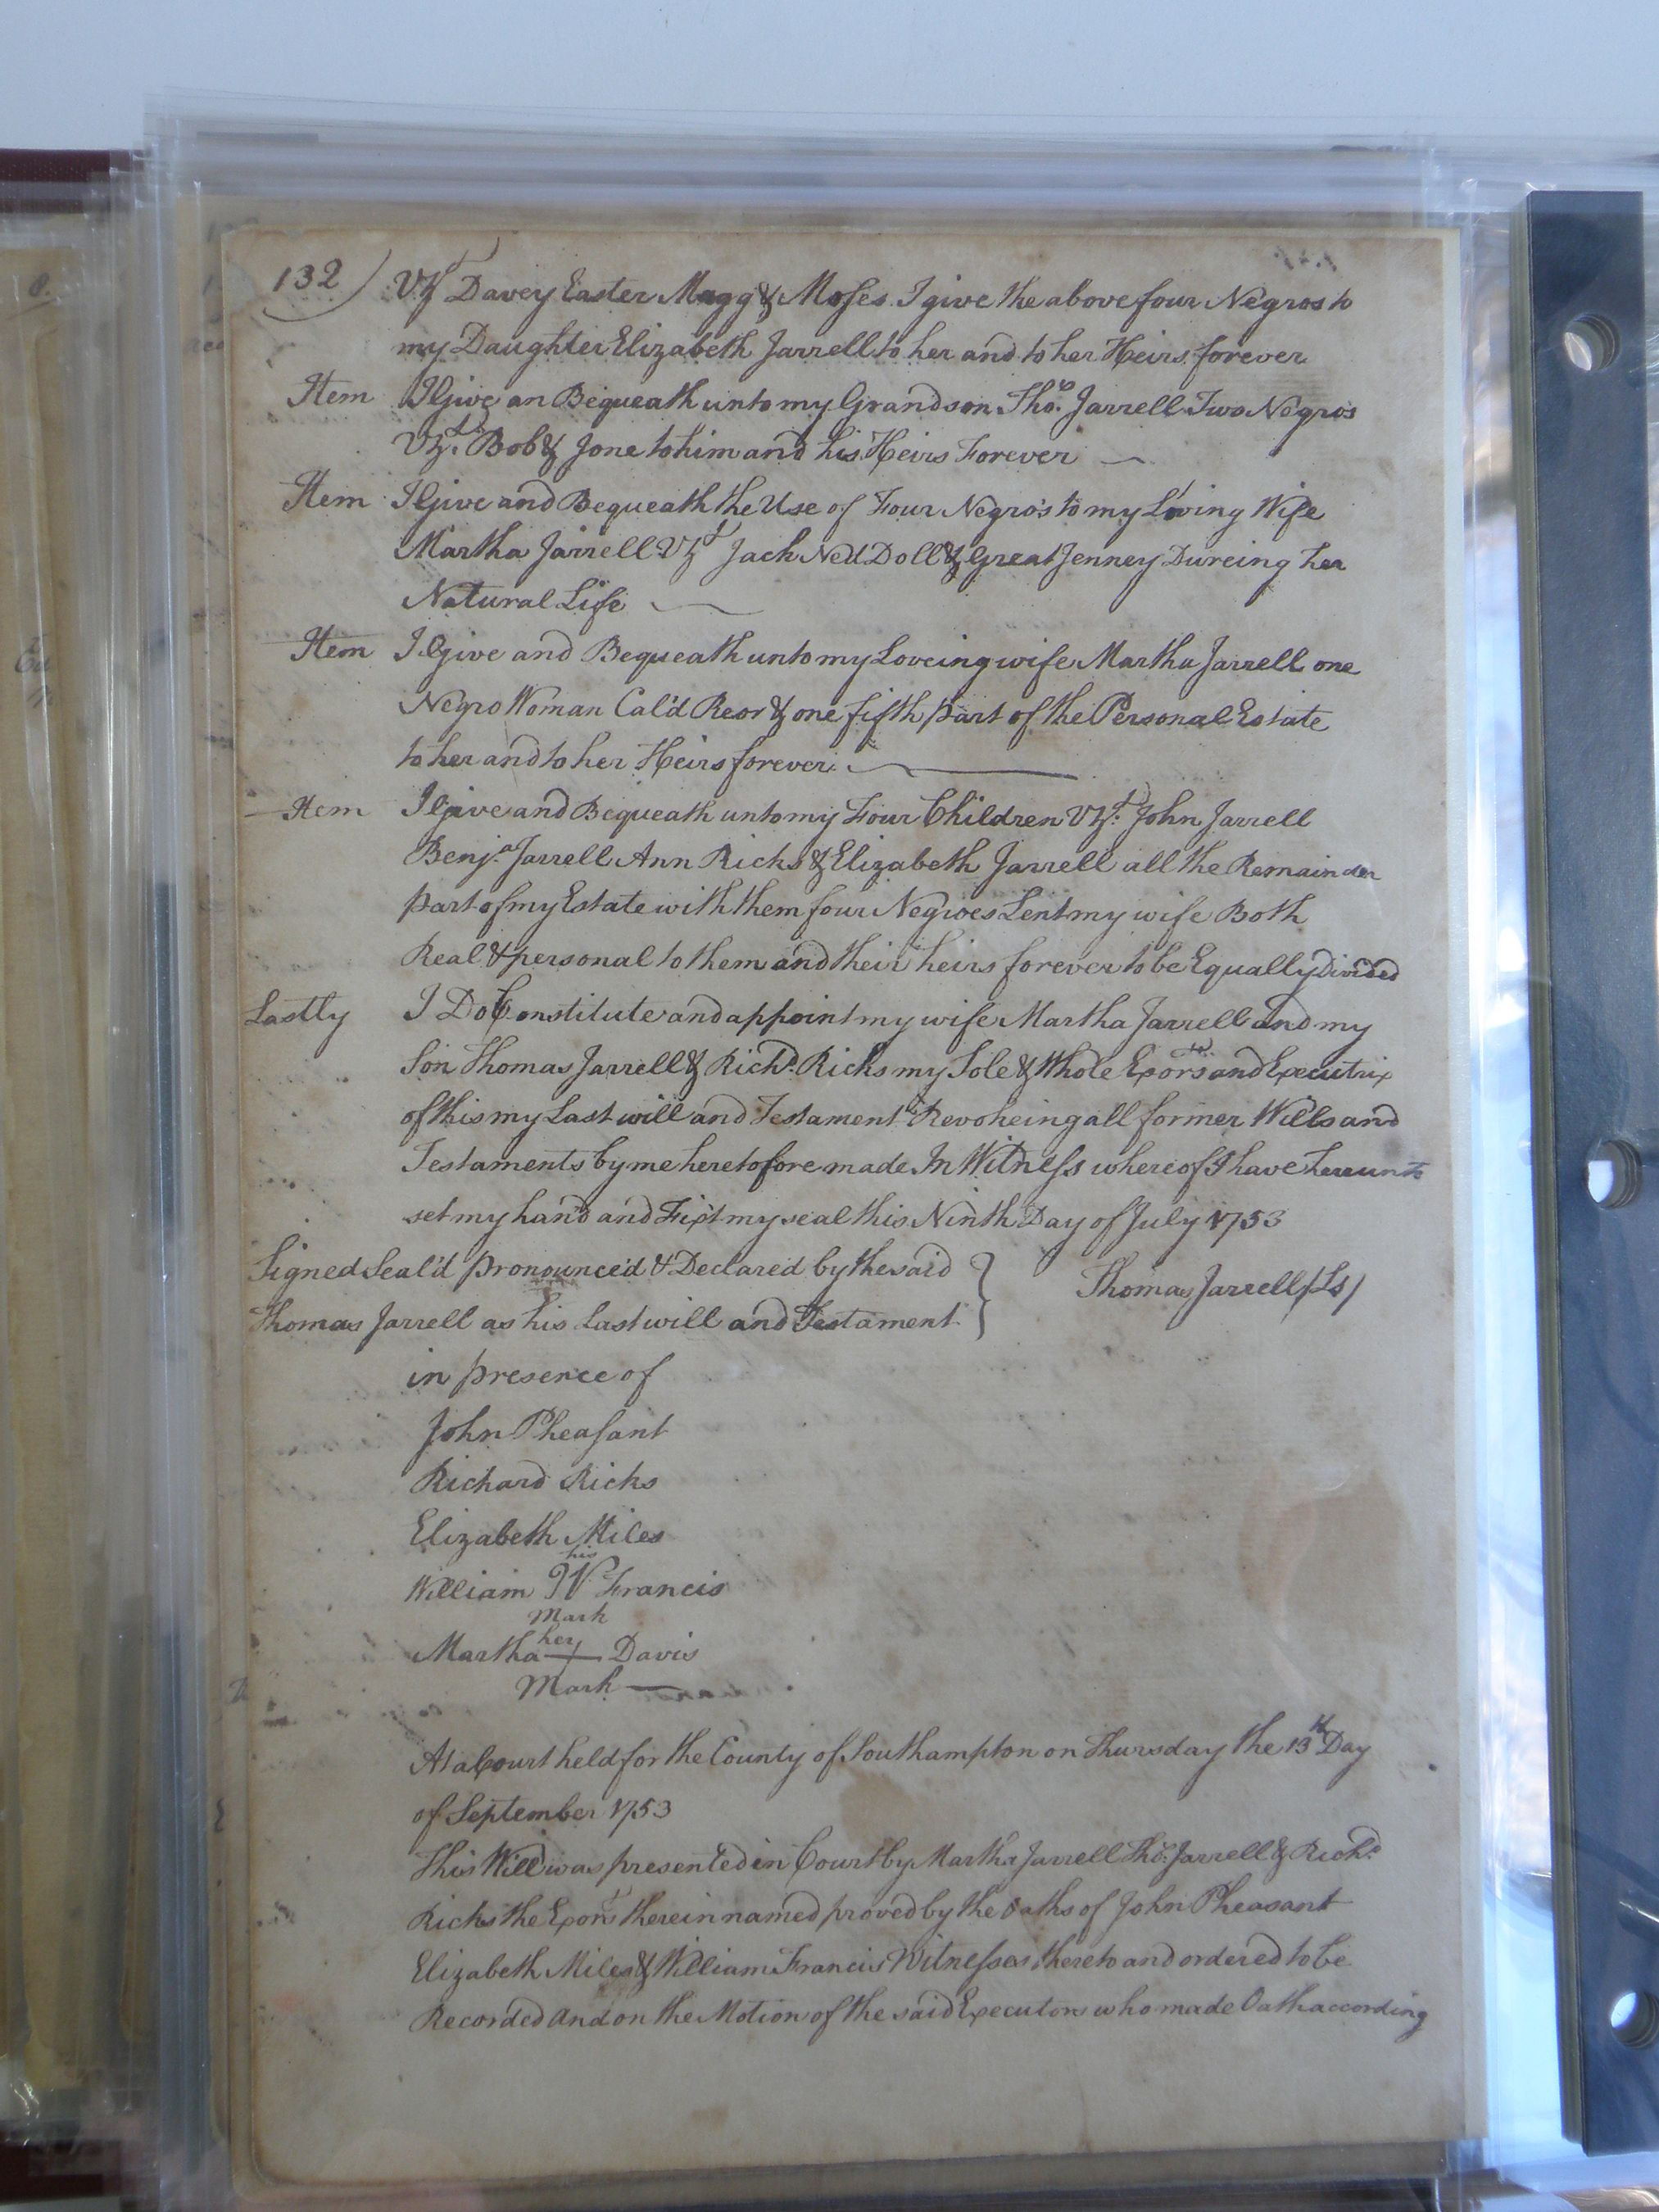 132) Vizt Davey Easter Magg & Moses I give the above four Negros to
my Daughter Elizabeth Jarrell to her and to her Heirs forever
Item I Give an Bequeath unto my Grandson Thos. Jarrell Two Negros
Vizt. Bob & Jone to him and his Heirs Forever
Item I Give and Bequeath the Use of Four Negro's to my Loving Wife
Martha Jarrell Vizt Jack Ned Doll & Great Jenney Dureing her
Natural Life
Item I Give and Bequeath unto my Loveing wife Martha Jarrell one
Negro Woman Cal'd Reor & one fifth part of the Personal Estate
to her and to her Heirs forever
Item I give and Bequeath unto my Four Children Vizt. John Jarrell
Benja. Jarrell Ann Ricks & Elizabeth Jarrell all the Remainder
part of my Estate with them four Negroes Lent my wife Both
Real & personal to them and their heirs forever to be Equally Divided
Lastly I Do Constitute and appoint my wife Martha Jarrell and my
Son Thomas Jarrell & Richd. Ricks my Sole & Whole Exors and Executrix
of this my Last will and Testament Revokeing all former Wills and
Testaments by me heretofore made In Witness whereof I have hereunto
set my hand and Fixt my seal this Ninth Day of July 1753
Signed Seal'd pronounced & Declared by the said
Thomas Jarrell as his Last will and Testament
Thomas Jarrell /Ls/
in presence of
John Pheasant
Richard Ricks
Elizabeth Miles
his
William W Francis
Mark
her
Martha + Davis
Mark
At a Court held for the County of Southampton on Thursday the 13th Day
of September 1753
This Will was presented in Court by Martha Jarrell Tho. Jarrell & Richd.
Ricks the Exors therein named proved by the Oaths of John Pheasant
Elizabeth Miles & William Francis Witnesses thereto and ordered to be
Recorded And on the Motion of the said Executors who made Oath according